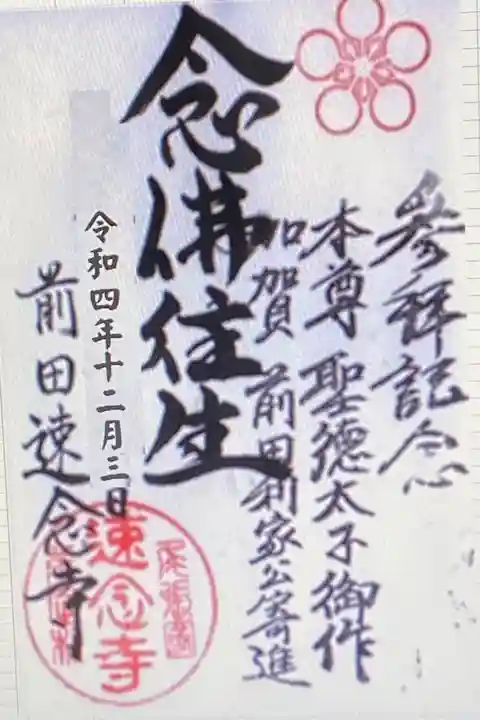 參拜記念
本尊 聖德太子御作
加賀 前田利家公寄進
念佛往生
令和四年十二月三日
前田速念寺
速念寺